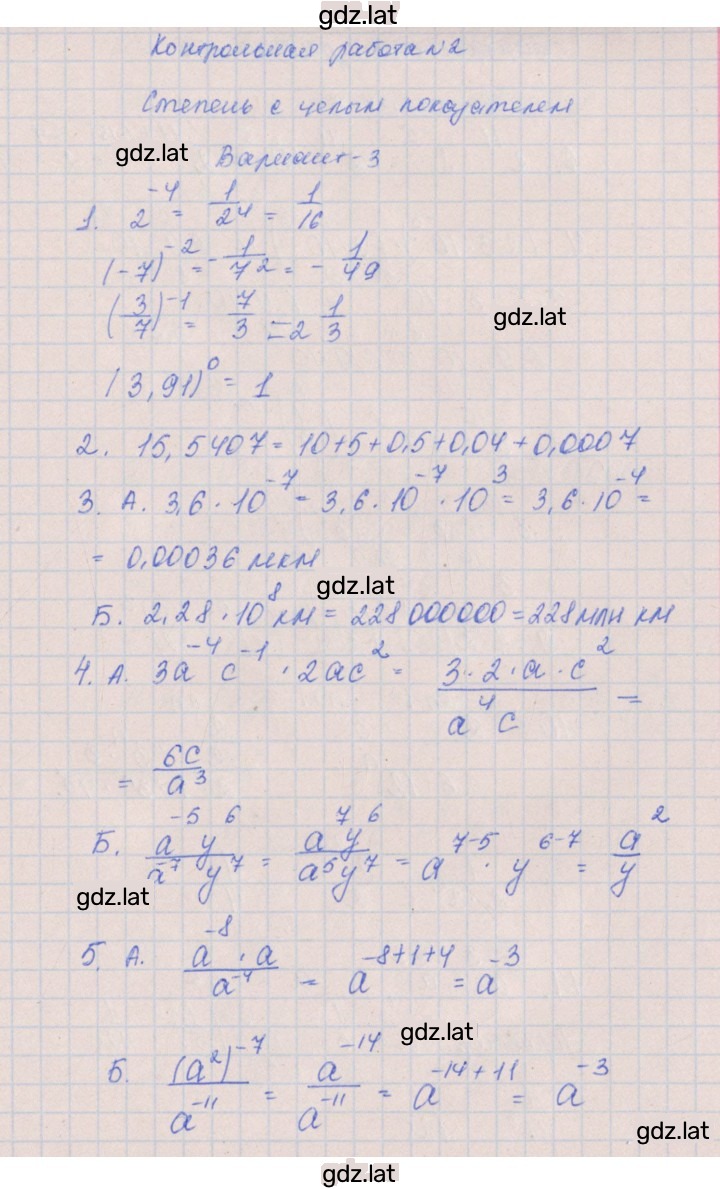 gdz.lat
Контрольная работа №2
Степень с целым показателем
gdz.lat
Вариант-3
1. 2^-4 = 1/2^4 = 1/16
(-7)^-2 = -1/7^2 = -1/49
(3/7)^-1 = 7/3 = 2 1/3
gdz.lat
(3,91)^0 = 1
2. 15,5407 = 10+5+0,5+0,04+0,0007
3. А. 3,6 · 10^-7 = 3,6 · 10^-7 · 10^3 = 3,6 · 10^-4 =
= 0,00036 мкм
gdz.lat
Б. 2,28 · 10^8 км = 228 000000 = 228 млн км
4. А. 3a^-4 c^-1 · 2ac^2 = 3·2·a·c^2 / a^4 c =
= 6c/a^3
Б. a^-5 y^6 / a^-7 y^7 = a^7 y^6 / a^5 y^7 = a^7-5 · y^6-7 = a^2/y
gdz.lat
5. А. a^-8 · a / a^-4 = a^-8+1+4 = a^-3
gdz.lat
Б. (a^2)^-7 / a^-11 = a^-14 / a^-11 = a^-14+11 = a^-3
gdz.lat
gdz.lat